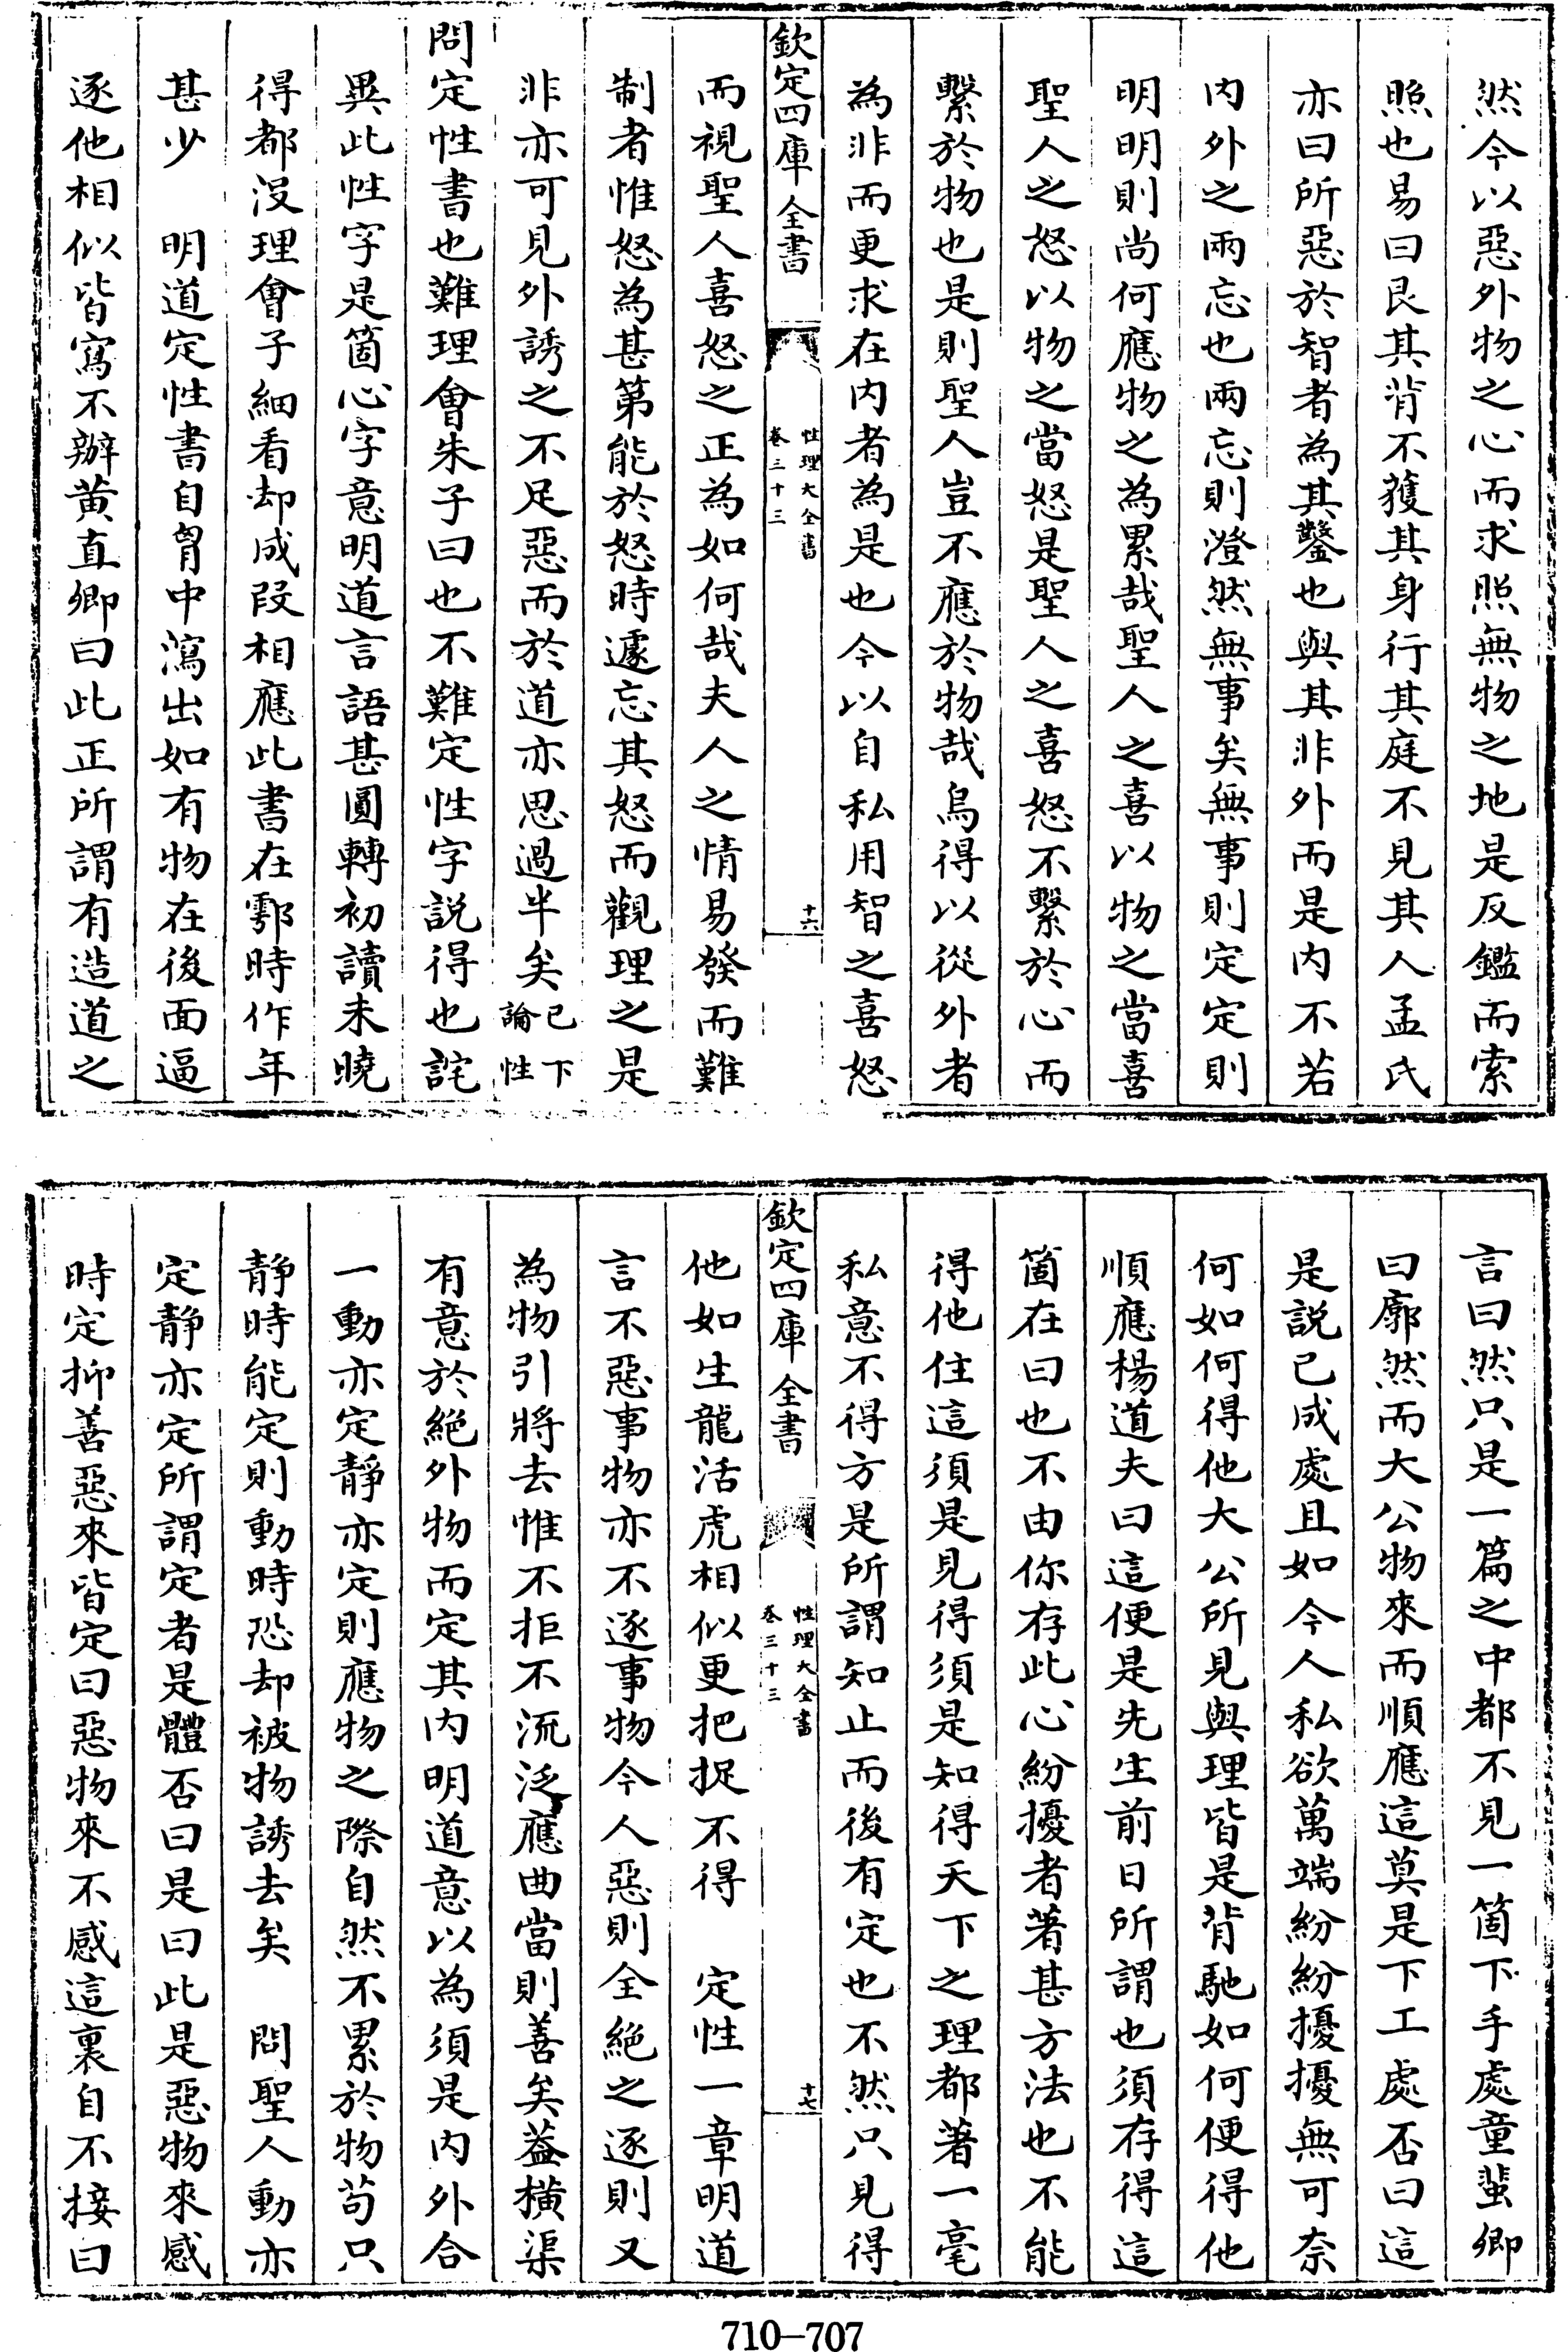 然今以惡外物之心而求照無物之地是反鑑而索
照也易曰艮其背不獲其身行其庭不見其人孟氏
亦曰所惡於智者為其鑿也與其非外而是内不若
内外之兩忘也兩忘則澄然無事矣無事則定定則
明明則尚何應物之為累哉聖人之喜以物之當喜
聖人之怒以物之當怒是聖人之喜怒不繫於心而
繫於物也是則聖人豈不應於物哉烏得以從外者
為非而更求在内者為是也今以自私用智之喜怒
欽定四庫全書
性理大全書
卷三十三
十六
而視聖人喜怒之正為如何哉夫人之情易發而難
制者惟怒為甚第能於怒時遽忘其怒而觀理之是
非亦可見外誘之不足惡而於道亦思過半矣已下論性
問定性書也難理會朱子曰也不難定性字説得也詫
異此性字是箇心字意明道言語甚圓轉初讀未曉
得都没理會子細看却成段相應此書在鄠時作年
甚少　明道定性書自胷中瀉出如有物在後面逼
逐他相似皆寫不辦黄直卿曰此正所謂有造道之
言曰然只是一篇之中都不見一箇下手處童蜚卿
曰廓然而大公物來而順應這莫是下工處否曰這
是説已成處且如今人私欲萬端紛紛擾擾無可奈
何如何得他大公所見與理皆是背馳如何便得他
順應楊道夫曰這便是先生前日所謂也須存得這
箇在曰也不由你存此心紛擾者著甚方法也不能
得他住這須是見得須是知得天下之理都著一毫
私意不得方是所謂知止而後有定也不然只見得
欽定四庫全書
性理大全書
卷三十三
十七
他如生龍活虎相似更把捉不得　定性一章明道
言不惡事物亦不逐事物今人惡則全絶之逐則又
為物引將去惟不拒不流泛應曲當則善矣葢横渠
有意於絶外物而定其内明道意以為須是内外合
一動亦定靜亦定則應物之際自然不累於物苟只
靜時能定則動時恐却被物誘去矣　問聖人動亦
定靜亦定所謂定者是體否曰是曰此是惡物來感
時定抑善惡來皆定曰惡物來不感這裏自不接曰
710—707